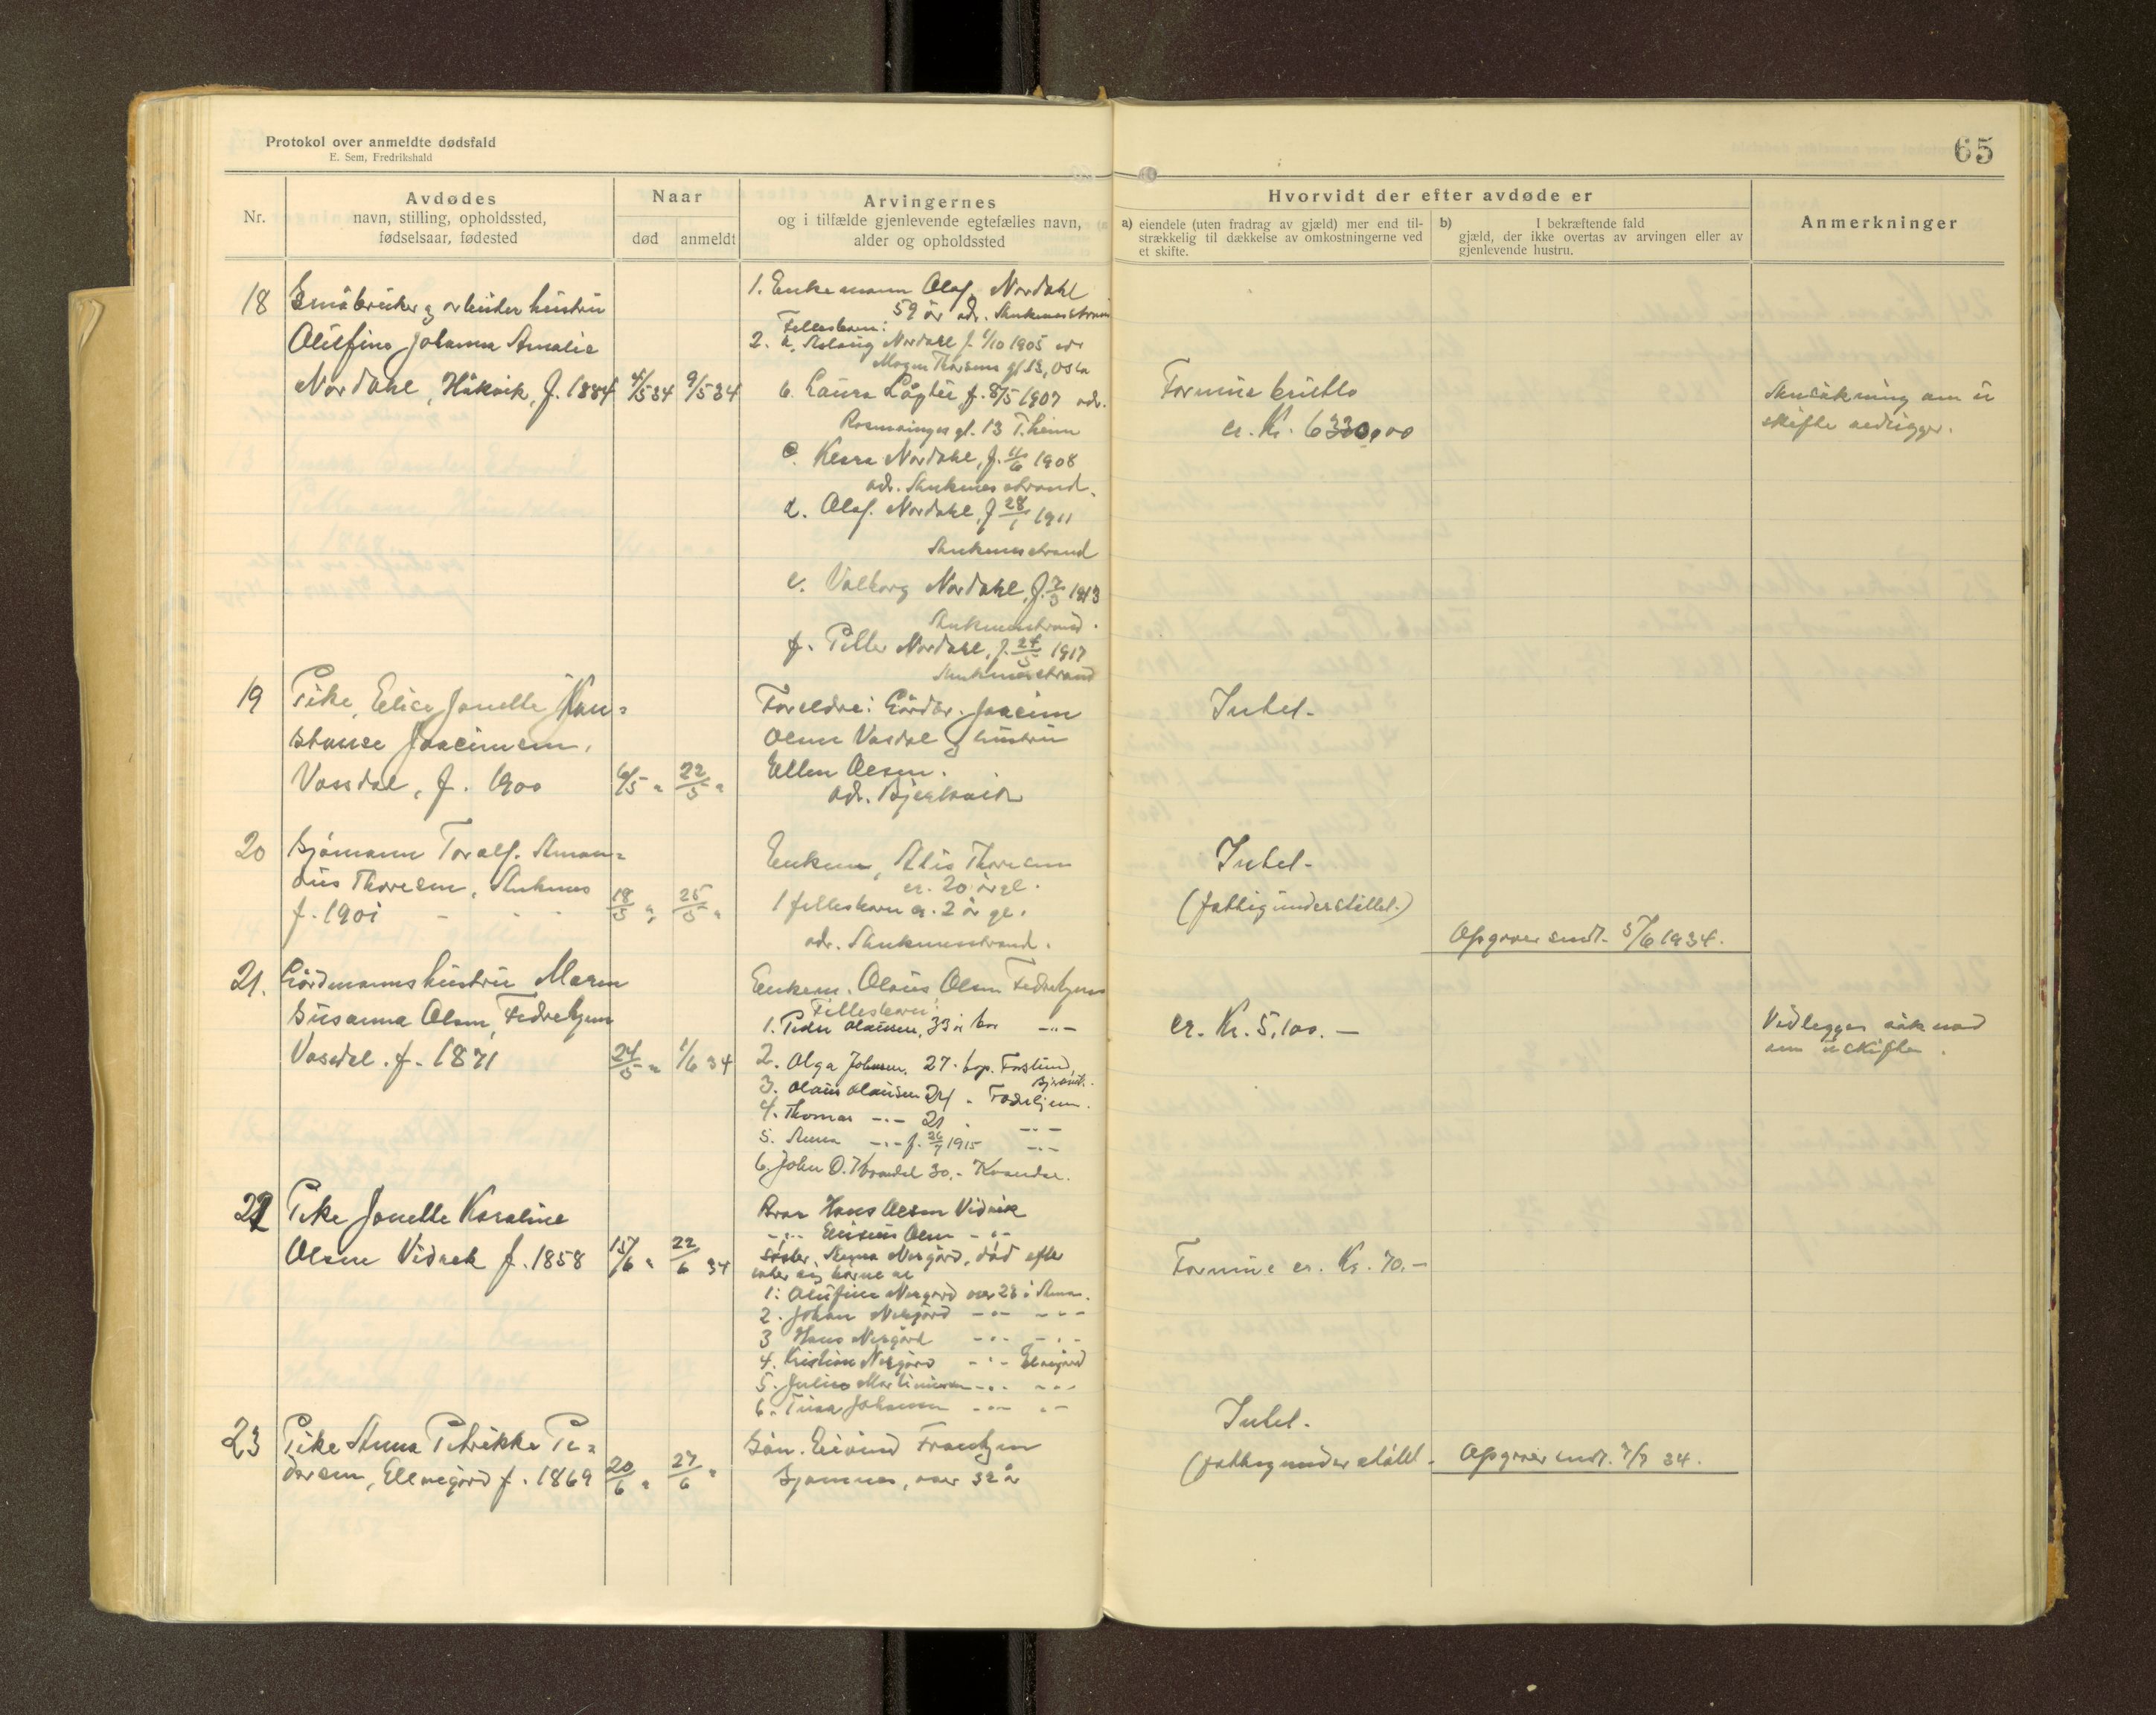 Protokol over anmeldte dødsfald
E. Sem, Fredrikshald
65
Nr.
Avdødes
navn, stilling, opholdssted,
fødselsaar, fødested
Naar
død
anmeldt
Arvingernes
og i tilfælde gjenlevende egtefælles navn,
alder og opholdssted
Hvorvidt der efter avdøde er
a) eiendele (uten fradrag av gjæld) mer end til-
strækkelig til dækkelse av omkostningerne ved
et skifte.
b) I bekræftende fald
gjæld, der ikke overtas av arvingen eller av
gjenlevende hustru.
Anmerkninger
18
Småbruker og arbeider hustru
Olufine Johanna Amalie
Nordahl, Håkvik, f. 1884
4/5 34
9/5 34
1. Enkemann Olaf Nordahl
59 år adr. Ankenesstrand
Fellesbarn:
2. a. Aslaug Nordahl f. 1/10 1905 adr
Mogens Thorsens gt 13, Oslo
b. Laura f. 8/5 1907 adr.
gt. 13 T.heim
c. Klara Nordahl, f. 11/6 1908
adr. Ankenesstrand.
d. Olaf Nordahl, f 28/1 1911
Ankenesstrand
e. Valborg Nordahl, f. 2/3 1913
Ankenesstrand.
f. Petter Nordahl, f. 24/5 1917
Ankenesstrand
Formue brutto
ca. Kr. 6330,00
Ansøkning om u
skifte vedligger.
19
Pike, Elise Jonette Kon=
stanse Joacimsen,
Vassdal, f. 1900
6/5 "
22/5 "
Foreldre: Gårdbr. Joacim
Olsen Vasdal og hustru
Ellen Olsen.
adr. Bjerkvik
Intet.
20
Sjømann Toralf Aman=
dus Thoresen, Ankenes
f. 1901
18/5 "
25/5 "
Enken, Alis Thoresen
ca. 20 år gl.
1 fellesbarn ca. 2 år gl.
adr. Ankenesstrand.
Intet.
(fattigunderstøttet.)
Opgaver sendt. 5/6 1934.
21.
Gårdmannshustru Maren
Susanna Olsen, Fedrehjem
Vasdal. f. 1871
24/5 "
1/6 34
Enkem. Olaus Olsen Fedrehjem
Fellesbarn:
1. Peder Olaussen, 33 år bor -"-
2. Olga Johnsen. 27. bop. Forslund,
3. Olaus Olaussen 24 - Fedrehjem.
4. Thomas -"- 21 -"-
5. Anna -"- f. 26/7 1915 -"-
6. John O. Kvandal 30. - Kvandal.
ca. Kr. 5.100. -
Vedlegger søknad
om uskifte.
22
Pike Jonette Karoline
Olsen Vidrek f. 1858
15/6 "
22/6 34
Bror Hans Olsen Vidrek
-"- Olsen -"-
Søster, Nergård, død efter
later sig barna al
1. Olufine Nergård over 23 i
2. Johan Nergård -"- -"-
3 Hans Nergård -"- -"-
4. Kristian Nergård -"- Elvegård
5. Julie Martinussen -"- -"-
6. Johansen -"- -"-
Formue ca. Kr. 70.-
23
Pike Anna Petrikke Pe=
dersen, Elvegård f. 1869
20/6 "
27/6 "
Søn. Frantzen
over 32 år
Intet.
(fattigunderstøttet.
Opgaver sendt. 7/7 34.